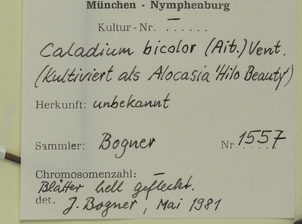 München - Nymphenburg
Kultur-Nr. – ......
Caladium bicolor (Ait.) Vent.
(Kultiviert als Alocasia 'Hilo Beauty')
Herkunft: unbekannt
Sammler: Bogner Nr 1557
Chromosomenzahl: –
Blätter hell gefleckt.
det. J. Bogner, Mai 1981